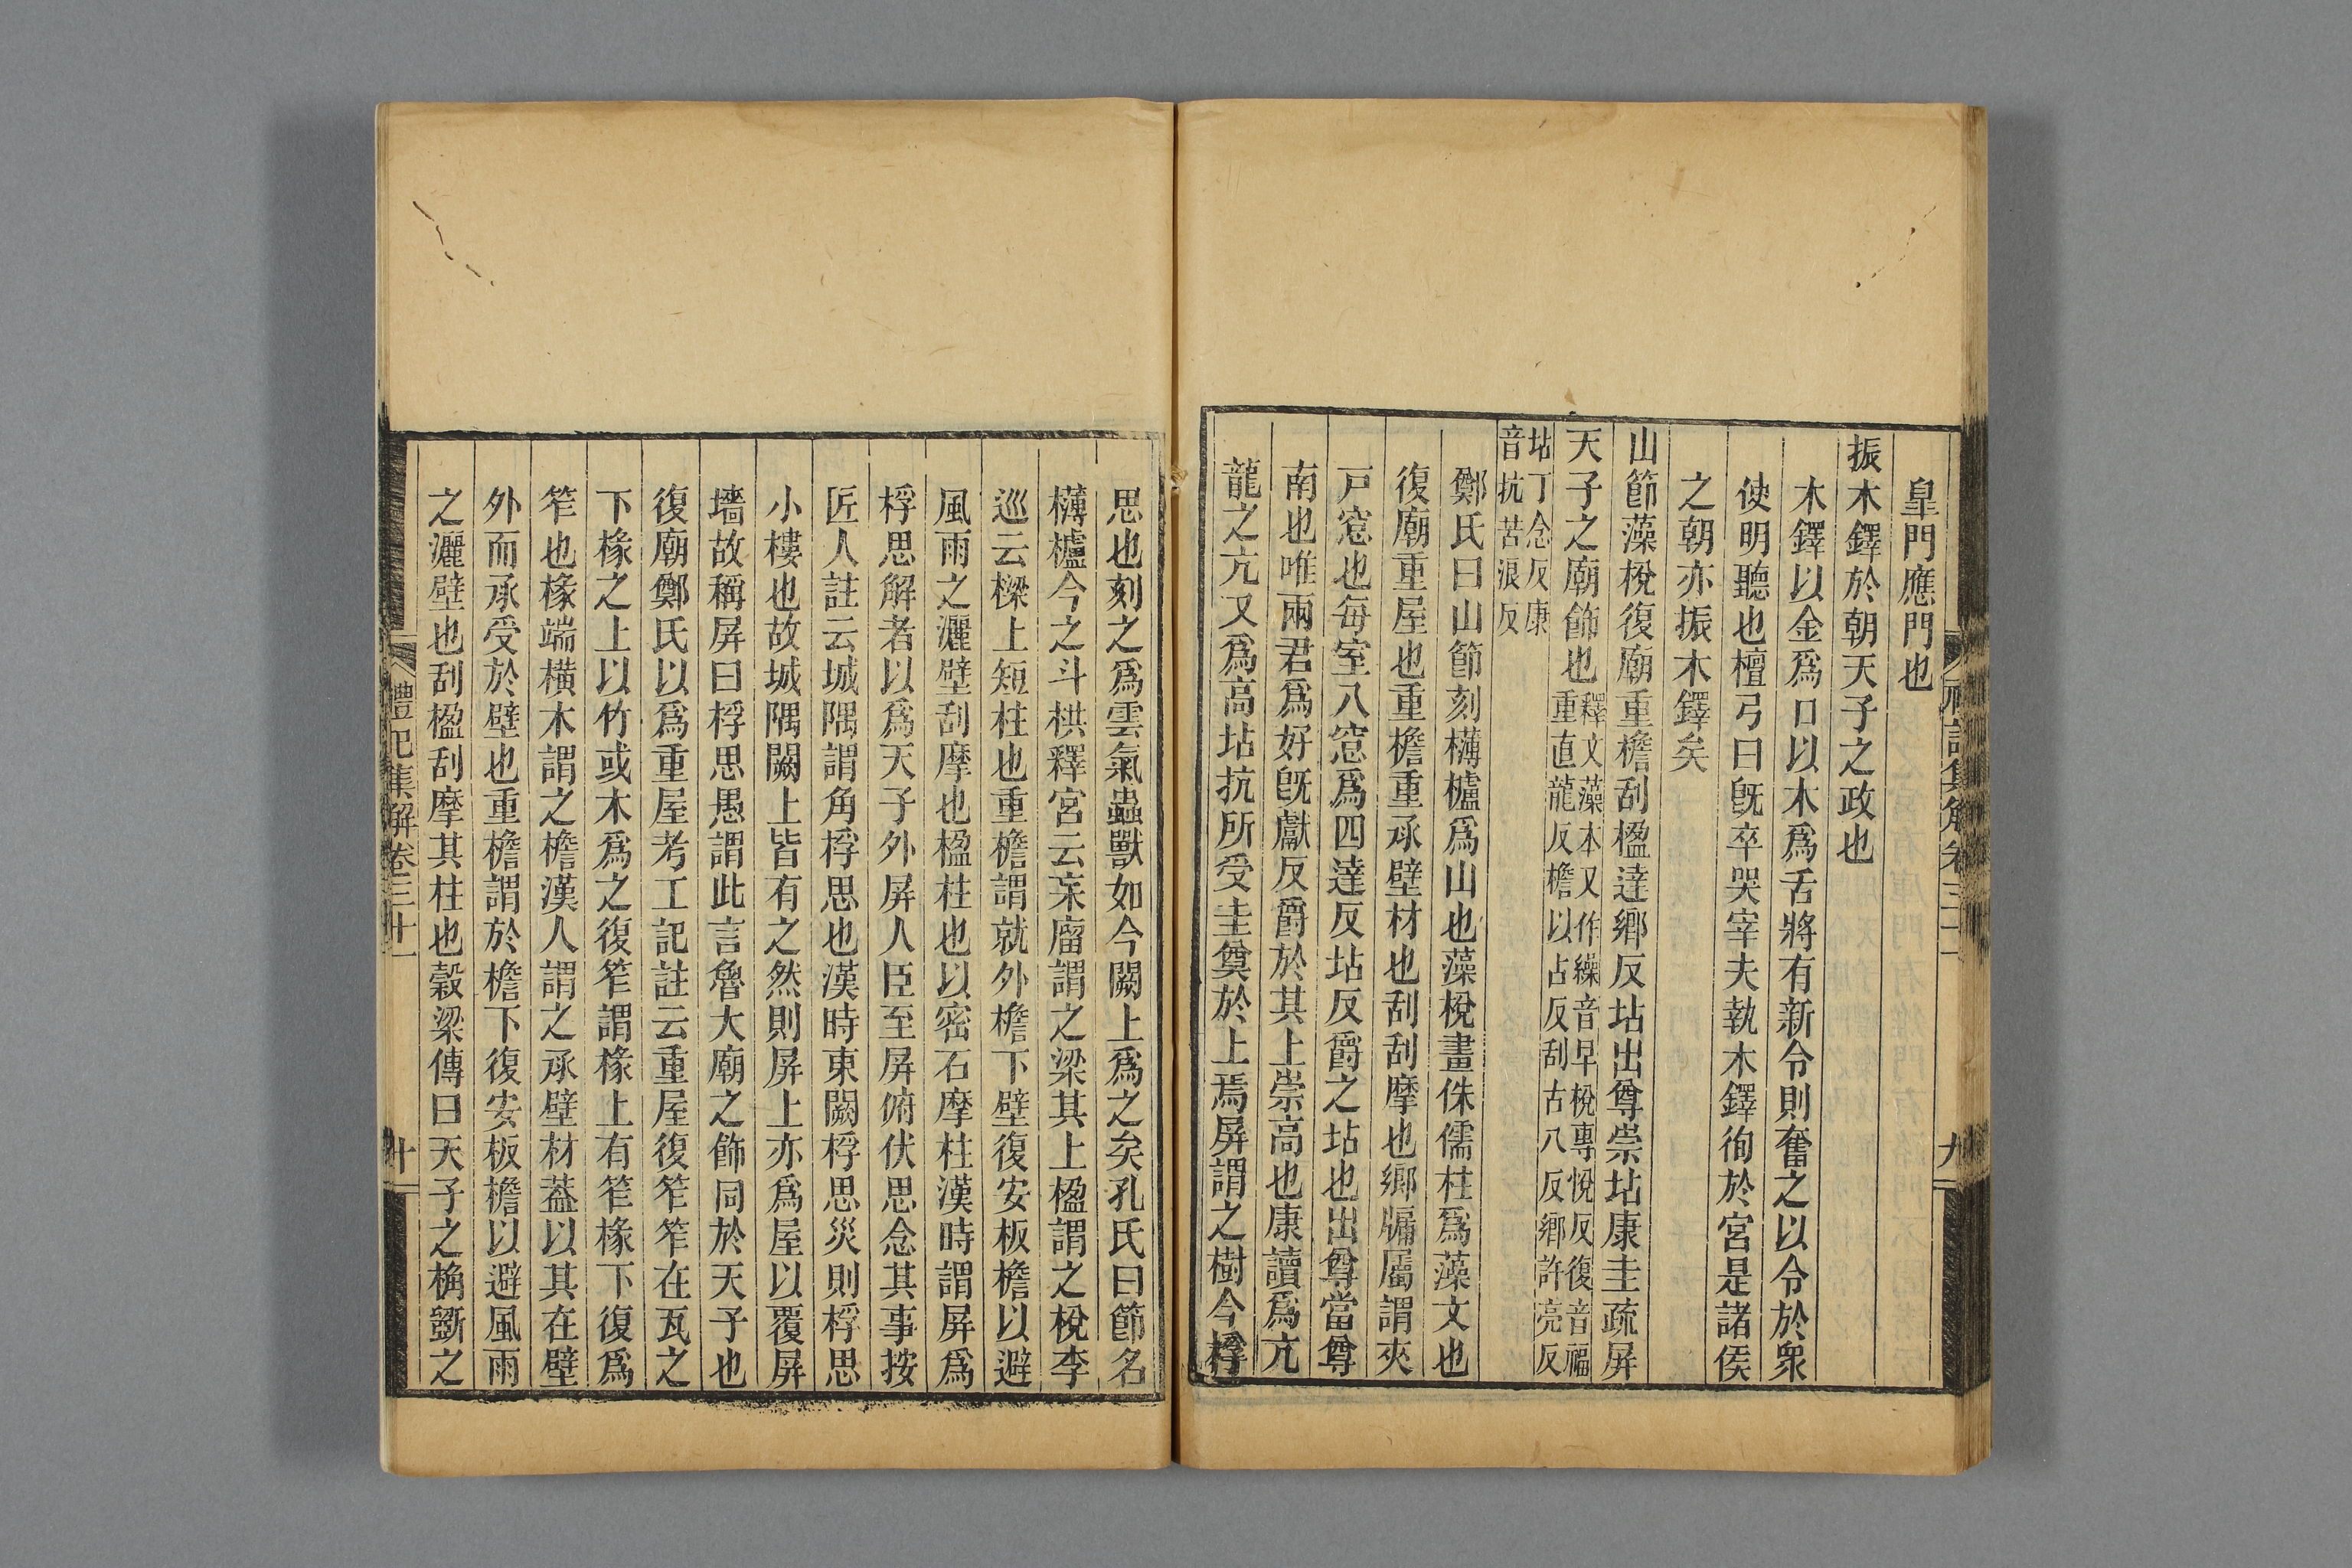 皐門應門也
振木鐸於朝天子之政也
木鐸以金爲口以木爲舌將有新令則奮之以令於衆
使明聽也檀弓曰旣卒哭宰夫執木鐸徇於宮是諸侯
之朝亦振木鐸矣
山節藻梲復廟重檐刮楹達鄉反坫出尊崇坫康圭疏屏
天子之廟飾也
釋文藻本又作繰音早梲專悅反復音福
重直龍反檐以占反刮古八反鄉許亮反
坫丁念反康
音抗苦浪反
鄭氏曰山節刻欂櫨爲山也藻梲畫侏儒柱爲藻文也
復廟重屋也重檐重承壁材也刮刮摩也鄉牖屬謂夾
戸窓也每室八窓爲四達反坫反爵之坫也出尊當尊
南也唯兩君爲好旣獻反爵於其上崇高也康讀爲亢
龍之亢又爲高坫抗所受圭奠於上焉屏謂之樹今桴
思也刻之爲雲氣蟲獸如今闕上爲之矣孔氏曰節名
欂櫨今之斗栱釋宮云杗廇謂之梁其上楹謂之梲李
巡云樑上短柱也重檐謂就外檐下壁復安板檐以避
風雨之灑壁刮摩也楹柱也以密石摩柱漢時謂屏爲
桴思解者以爲天子外屏人臣至屏俯伏思念其事按
匠人註云城隅謂角桴思也漢時東闕桴思災則桴思
小樓也故城隅闕上皆有之然則屏上亦爲屋以覆屏
墻故稱屏曰桴思愚謂此言魯大廟之飾同於天子也
復廟鄭氏以爲重屋考工記註云重屋復笮笮在瓦之
下椽之上以竹或木爲之復笮謂椽上有笮椽下復爲
笮也椽端橫木謂之檐漢人謂之承壁材蓋以其在壁
外而承受於壁也重檐謂於檐下復安板檐以避風雨
之灑壁也刮楹刮摩其柱也穀梁傳曰天子之桷斲之
禮記集解卷三十一
十
九